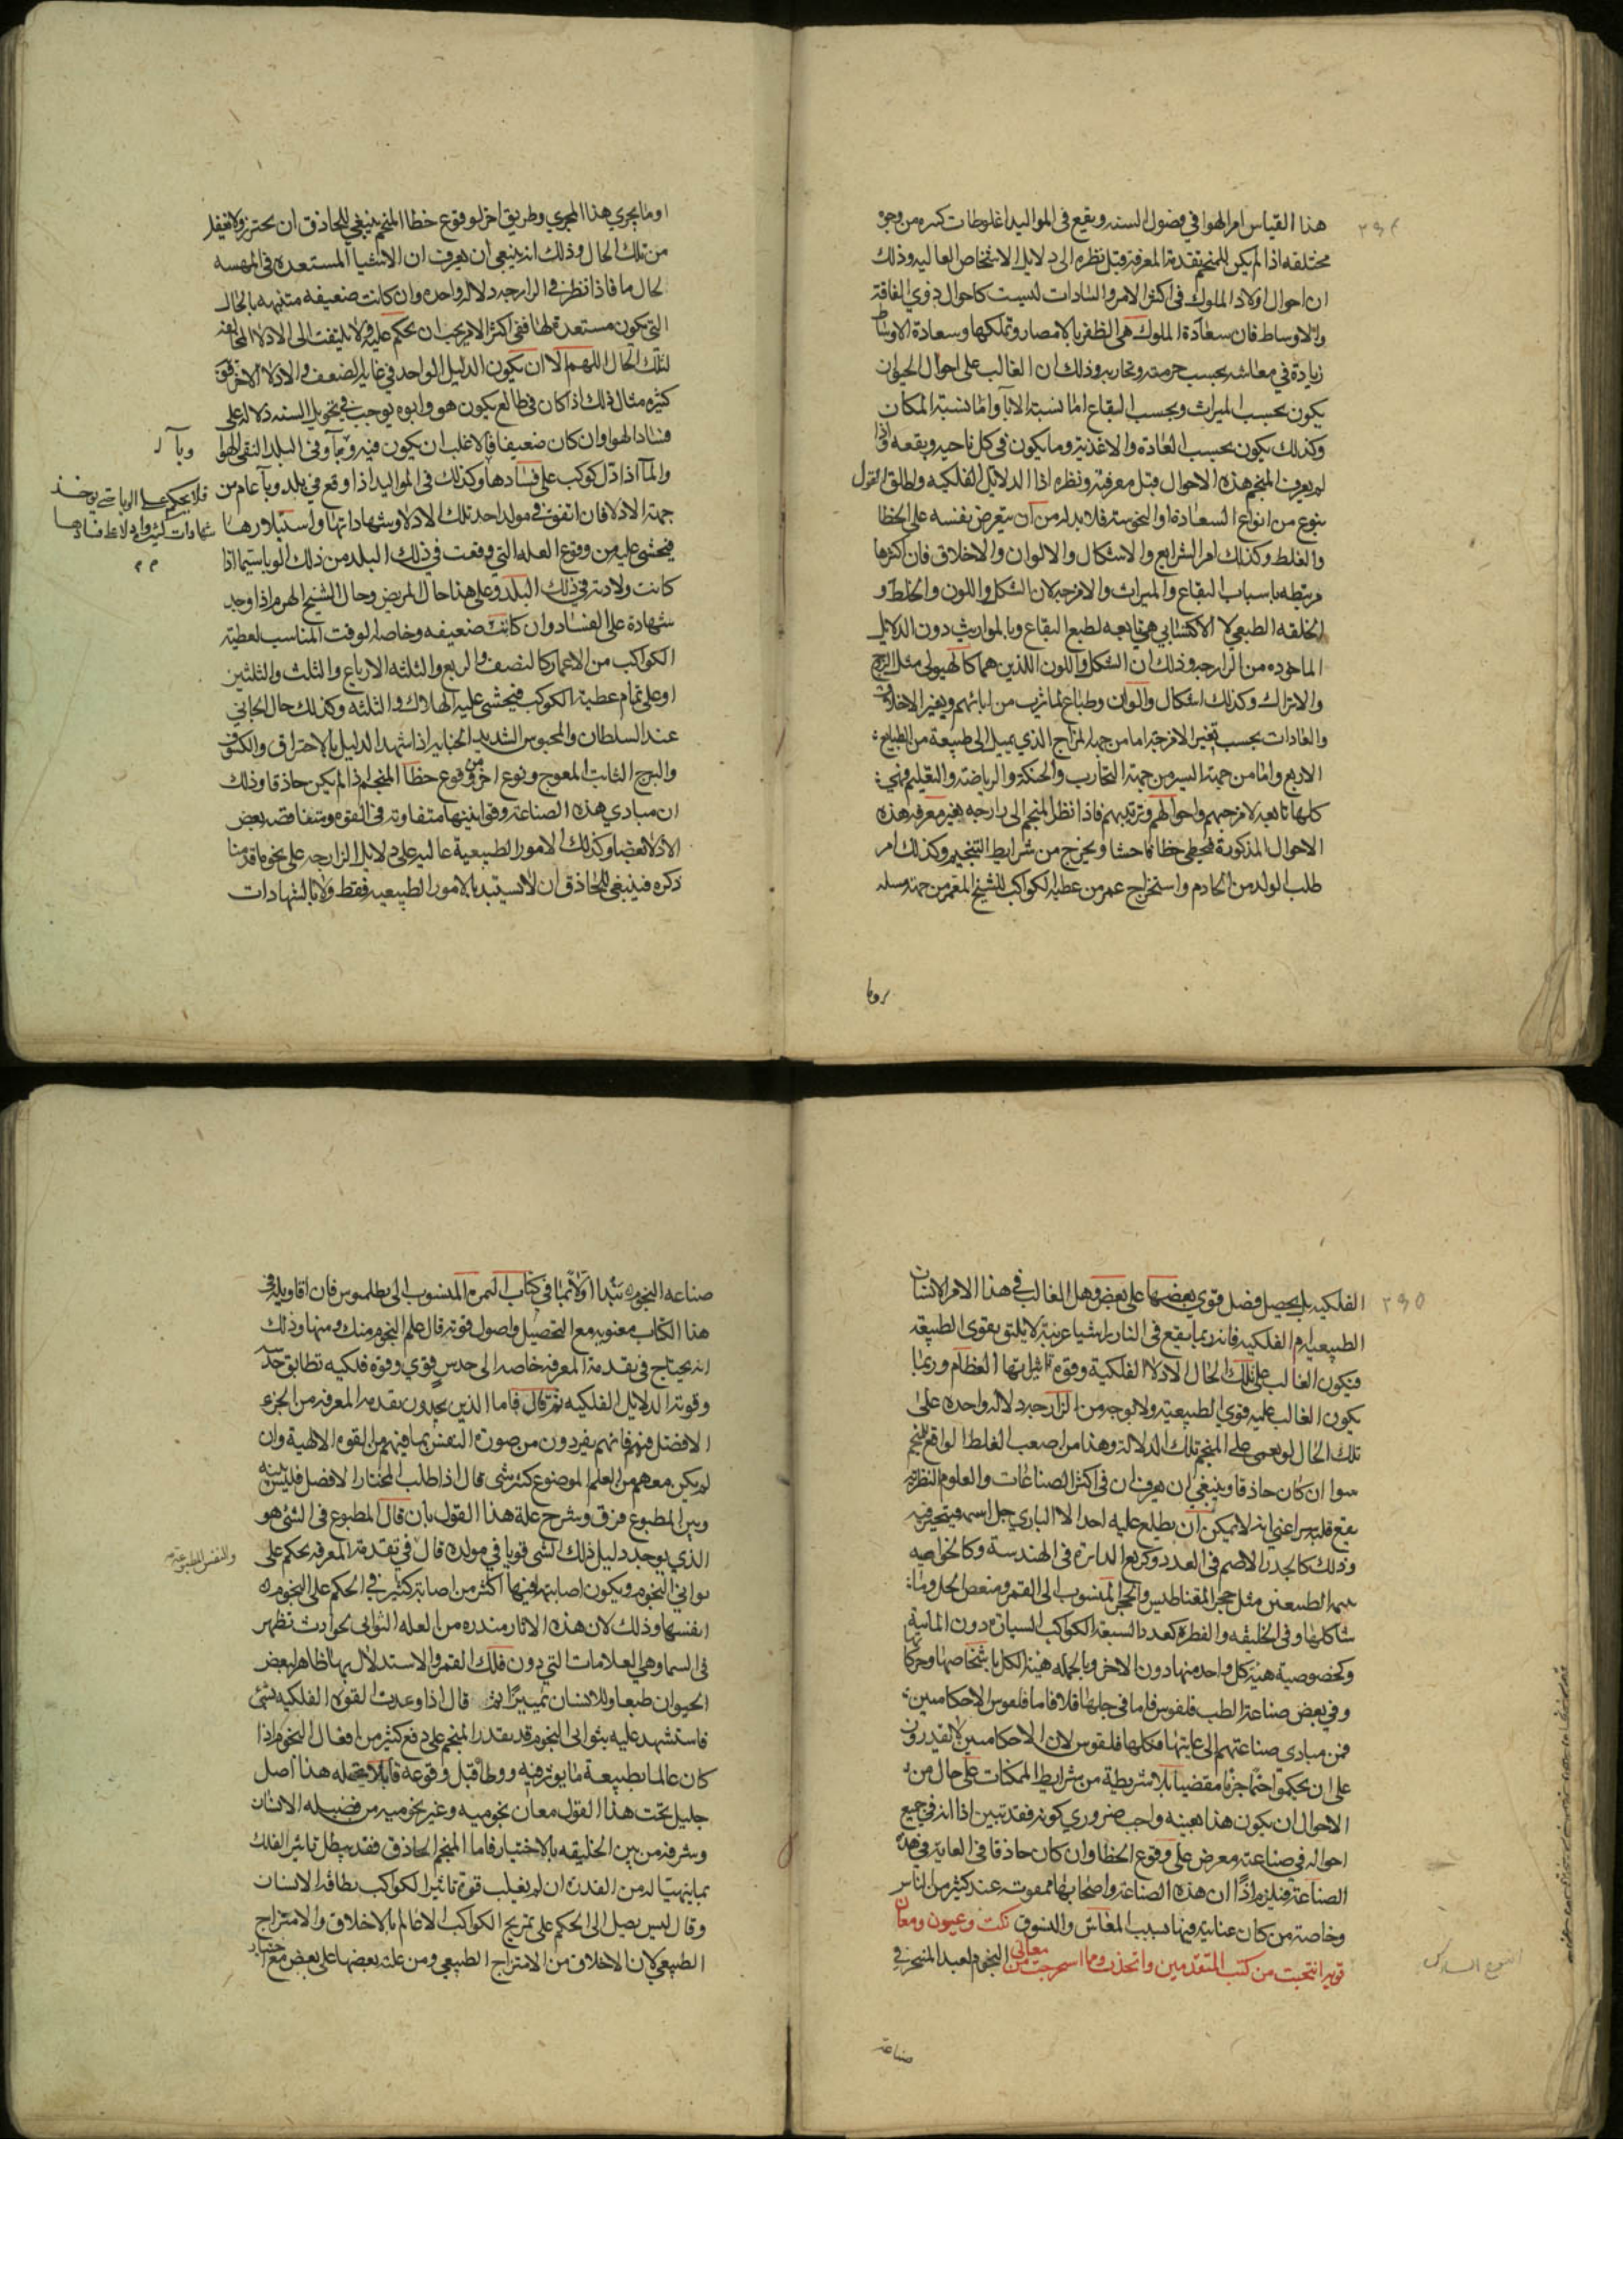 ٢٩٤
هذا القياس امر الهوا في فصول السنه ويقع في المواليد اغلوطات كثيره من وجوه
مختلفه اذا لم يكن للمنجم تقدمة المعرفة قبل نظره الى دلايل الاشخاص العاليه وذلك
ان احوال اولاد الملوك في اكثر الامر والسادات ليست كاحوال ذوي الفاقة
والاوساط فان سعادة الملوك هي الظفر بالامصار وتملكها وسعادة الاوساط
زيادة في معاشه بحسب حرمته وتجاربه وذلك ان الغالب على احوال الحيوان
يكون بحسب الميراث وبحسب البقاع اما نسبة الابآ واما نسبة المكان
وكذلك يكون بحسب العادة والاغذية وما يكون في كل ناحيه وبقعه واذا
لم يعرف المنجم هذه الاحوال قبل معرفته ونظره اذا الدلايل الفلكيه واطلق القول
بنوع من انواع السعادة او النحوسة فلا بد له من ان يتعرض بنفسه على الخطا
والغلط وكذلك امر الشرايع والاشكال والالوان والاخلاق فان اكثرها
مرتبطه باسباب البقاع والميراث والامزجه لان الشكل واللون والخلط و
الخلقه الطبعي لا الاكتسابي هي تابعه لطبع البقاع وبالمواريث دون الدلايل
الماخوده من الزايرجه وذلك ان الشكل واللون اللذين هما كالهيولى مثل الزنج
والاتراك وكذلك اشكال والوان وطباع لما ترث من ابائهم ويغير الاخلاق
والعادات بحسب تغير الامزجة اما من جهة المزاج الذي يميل الى طبيعة من الطبايع
الاربع واما من جهة السير من جهة التجارب والحنكة والرياضة والتعليم فهي
كلها تابعه لامزجهم واحوالهم وترتيبهم فاذا نظر المنجم الى زايرجه بغير معرفه هذه
الاحوال المذكورة فيخطي خطا فاحشا ويخرج من شرايط التنجيم وكذلك امر
طلب الولد من الخادم واستخراج عمر من عطية الكواكب للشيخ المعمر من جهة مسله
اوما
او ما يجري هذا المجري وطريق اخر لوقوع خطا المنجم ينبغي للحاذق ان يحترز ولا يغفل
من تلك الحال وذلك انه ينبغي ان يعرف ان الاشيا المستعده في المهيه
لحال ما فاذا نظر في الزايرجه دلاله واحده وان كانت ضعيفه متنبهه بالحال
التي يكون مستعدة لها ففي اكثر الامر يجب ان يحكم عليه ولا يلتفت الى الادلا المخالفه
لتلك الحال اللهم الا ان يكون الدليل الواحد في غاية الضعف والادلا الاخر قوية
كثيره مثال ذلك اذا كان في طالع يكون هو وابوه يوجب في تحويل السنه دلاله على
فساد الهوا وان كان ضعيفا فالاغلب ان يكون فيه وبآ وفي البلد النقي الهوا
وبآ
والمآ اذا دل كوكب على فسادها وكذلك في المواليد اذا وقع في بلد وبآ عام من
فلا يحكم على الوبا حتى يوخذ
شهادات كثيره او دلايل على فسادها
جهة الادلا فان اتفق في مولد احد تلك الادلا وشهاداتها واستيلاوها
فيخشى عليه من وقوع العله التي وقعت في ذلك البلد من ذلك الوبا سيما اذا
كانت ولادته في ذلك البلد وعلى هذا حال المريض وحال الشيخ الهرم اذا وجد
شهادة على الفساد وان كانت ضعيفه وخاصه لوقت المناسب لعطية
الكواكب من الاعمار كالنصف والربع والثلثه الارباع والثلث والثلثين
او على تمام عطية الكوكب فيخشى عليه الهلاك والثلثه وكذلك حال الجاني
عند السلطان والمحبوس الشديد الجنايه اذا شهد الدليل بالاحتراق والكسوف
والبرج الثابت المعوج ونوع اخر من وقوع خطا المنجم اذا لم يكن حاذقا وذلك
ان مبادي هذه الصناعة وقوانينها متفاوته في القوه ومتناقضه بعض
الادلا لبعضها وكذلك الامور الطبيعية عاليه على دلايل الزايرجه على نحو ما قدمنا
ذكره فينبغي للحاذق ان لا يستبد بالامور الطبيعيه فقط ولا بالشهادات
٢٩٥
الفلكيه بل يحصل فضل قوى بعضها على بعض وهل الغالب في هذا الامر الانسان
الطبيعيه ام الفلكيه فانه ربما يقع في النار اشيا غريبة لا يلتق بقوى الطبيعه
فيكون الغالب على تلك الحال الادلا الفلكية وقوة تاثيراتها العظام وربما
يكون الغالب عليه قوى الطبيعيه ولا يوجد من الزايرجه دلاله واحده على
تلك الحال او يعمى على المنجم تلك الدلالة وهذا من اصعب الغلط الواقع للمنجم
سوا ان كان حاذقا وينبغي ان يعرف ان في اكثر الصناعات والعلوم النظرية
يقع فلبس اعني انه لا يمكن ان يطلع عليه احد الا الباري جل اسمه فيتحير فيه
وذلك كالجدر الاصم في العدد وكربع الدايرة في الهندسة وكالخواصه
الطبيعتين مثل حجر المغناطيس والحجر المنسوب الى القمر
شاكلها وفي الخليقه والفطره كعدد السبعة الكواكب السياره دون الثمانية
وكخصوصية هيئة كل واحد منها دون الاخر وبالجمله هيئة الكل باشخاصها وحركاتها
وفي بعض صناعة الطب فلقوس فاما في جلها فلا فاما فلقوس الاحكاميين
فمن مبادى صناعتهم الى غايتها فكلها فلقوس لان الاحكاميين لا يقدرون
على ان يحكموا حتما جزما مقضيا بلا شريطة من شرايط الممكنات على حال من
الاحوال ان يكون هذا بعينه واجب ضروري كونه فقد تبين اذا انه في جميع
احواله في صناعته معرض على وقوع الخطا وان كان حاذقا في الغاية في هذه
الصناعة فيلزم اذا ان هذه الصناعة واصحابها ممقوته عند كثير من الناس
وخاصة من كان عنايته فيها بسبب المعاش والسوق نكت وعيون ومعان
قويه انتخبت من كتب المتقدمين واتخذت وما استخرجت من معاني النجوم لعبد المنجم في
النوع السادس
صناعة
صناعه النجوم نبتدا اولا بما في كتاب الثمره المنسوب الى بطلموس فان اقاويله في
هذا الكتاب معنويه مع التحصيل واصول قويه قال علم النجوم منك ومنها وذلك
انه يحتاج في تقدمة المعرفه خاصه الى حدس قوي وقوه فلكيه تطابق حد
وقوته الدلايل الفلكيه ثم قال فاما الذين يجدون تقدمه المعرفه من الجزء
الافضل فيهم فانهم ينفردون من صورة النفس بما فيهم من القوه الالهية وان
لم يكن معهم من العلم الموضوع كثير شي قال اذا طلب المختار الافضل فليس بينه
وبين المطبوع فرق وشرح علة هذا القول بان قال المطبوع في الشئ هو
الذي يوجد دليل ذلك الشي قويا في مولده قال في تقدمة المعرفه يحكم على
والنفس المطبوعه
ثواني النجوم ويكون اصابتها فيها اكثر من اصابة كثير في الحكم على النجوم
انفسها وذلك لان هذه الاثار منذره من العله الثواني بحوادث تظهر
في السما وهي العلامات التي دون فلك القمر والاستدلال بها ظاهر لبعض
الحيوان طبعا وللانسان تمييزا قال اذا وعدت القوه الفلكيه بشئ
فاستشهد عليه بثواني النجوم قد يقدر المنجم على دفع كثير من افعال النجوم اذا
كان عالما بطبيعة ما يوثر فيه ووطا قبل وقوعه قابلا يحتمله هذا اصل
جليل تحت هذا القول معان نجوميه وغير نجوميه من فضيله الانسان
وشرفه من بين الخليقه بالاختيار فاما المنجم الحاذق فقد يبطل تاثير الفلك
بما يتهيا له من القدره ان لم يغلب قوة تاثير الكواكب بطاقة الانسان
وقال ليس يصل الى الحكم على تمزيج الكواكب الا عالم بالاخلاق والامتزاج
الطبيعي لان الاخلاق من الامتزاج الطبيعي ومن علته بعضها على بعض مع